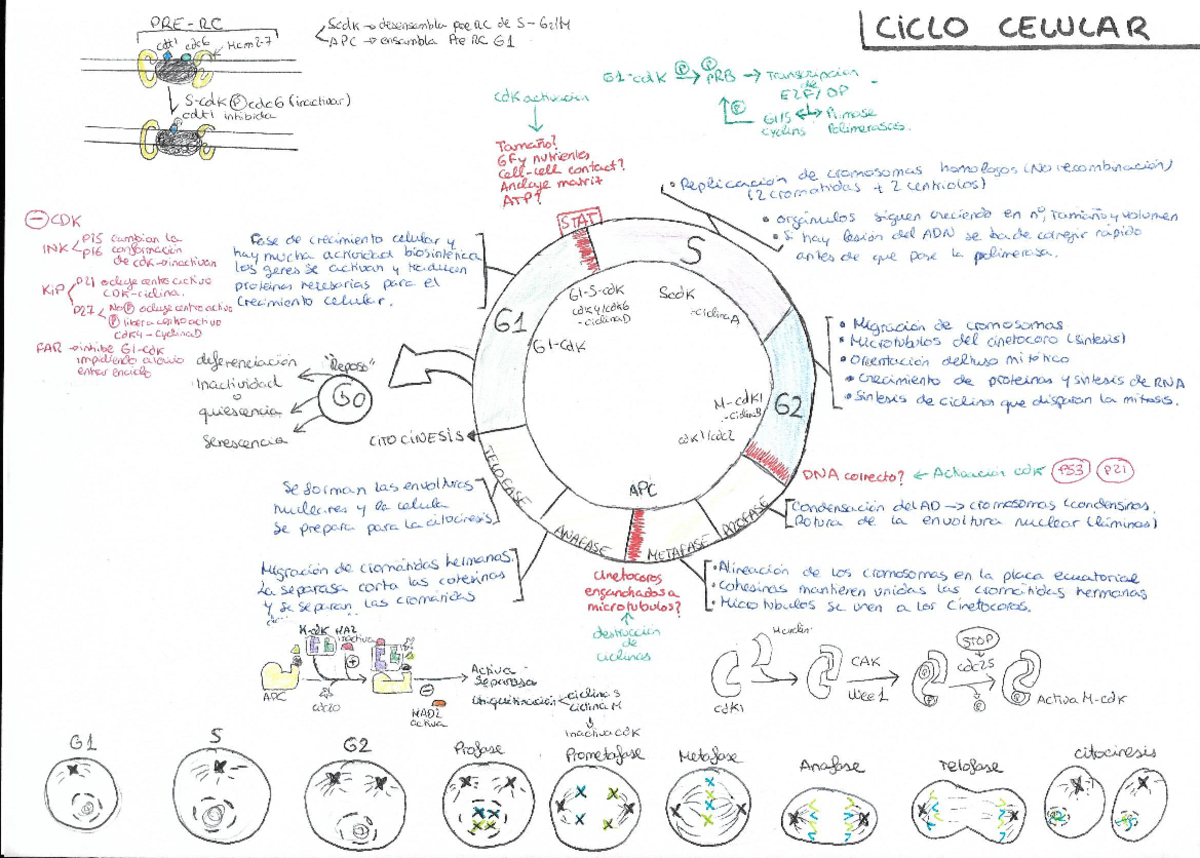 CICLO CELULAR
PRE-RC
cdt1 cdc6
Mcm2-7
S-cdK Ⓟ cdc6 (inactivar)
cdt1 inhibida
Scdk → desensambla pre RC de S-G2/M
APC → ensambla Pre RC G1
cdK activación
Tamaño?
GF y nutrientes
Cell-cell contact?
Anclaje matriz
ATP?
START
G1-cdK Ⓟ→ Ⓟ PRB → Transcripción
de
E2F/DP
G1/S ↔ Primasa
cyclins Polimerasas.
• Replicación de cromosomas homologos (No recombinación)
(2 cromatidas + 2 centriolos)
• Orgánulos siguen creciendo en nº, tamaño y volumen
• Si hay lesión del ADN se ha de corregir rápido
antes de que pase la polimerasa.
⊖ CDK
INK
P15 cambian la
P16 conformación
de cdk → inactivan
KiP
P21 ocluye centro activo
CDK-ciclina.
P27
No Ⓟ ocluye centro activo
Ⓟ libera centro activo
cdK4-cyclinaD
FAR → inhibe G1-cdK
impidiendo
entrar en ciclo
Fase de crecimiento celular y
hay mucha actividad biosintética
los genes se activan y traducen
proteínas necesarias para el
crecimiento celular.
G1
S
G2
G1-S-cdK
cdK4/cdK6
-ciclinaD
G1-cdK
Scdk
-ciclinaA
M-cdK1
-ciclinaB
cdk1/cdc2
APC
"Reposo"
G0
diferenciación
Inactividad
o
quiescencia
Senescencia
CITOCINESIS
TELOFASE
ANAFASE
METAFASE
PROFASE
• Migración de cromosomas
• Microtúbulos del cinetocoro (síntesis)
• Orientación del huso mitótico
• Crecimiento de proteínas y síntesis de RNA
• Síntesis de ciclinas que disparan la mitosis.
DNA correcto? ← Activación cdK P53 P21
Condensación del AD → cromosomas (condensinas)
Rotura de la envoltura nuclear (láminas)
• Alineación de los cromosomas en la placa ecuatorial
• Cohesinas mantienen unidas las cromátidas hermanas
• Microtubulos se unen a los Cinetocoros.
Se forman las envolturas
nucleares y la celula
se prepara para la citocinesis
Migración de cromátidas hermanas.
La separasa corta las cohesinas
y se separan las cromátidas
Cinetocoros
enganchados a
microtubulos?
destrucción
de
ciclinas
M-cdK MAD2
inactiva
APC
cdc20
MAD2
activa
Activa
Separasa
Ubiquitinación
ciclina S
ciclina M
inactiva cdK
cdK1
CAK
Wee1
STOP
cdc25
Activa M-cdK
G1
S
G2
Profase
Prometafase
Metafase
Anafase
Telofase
citocinesis